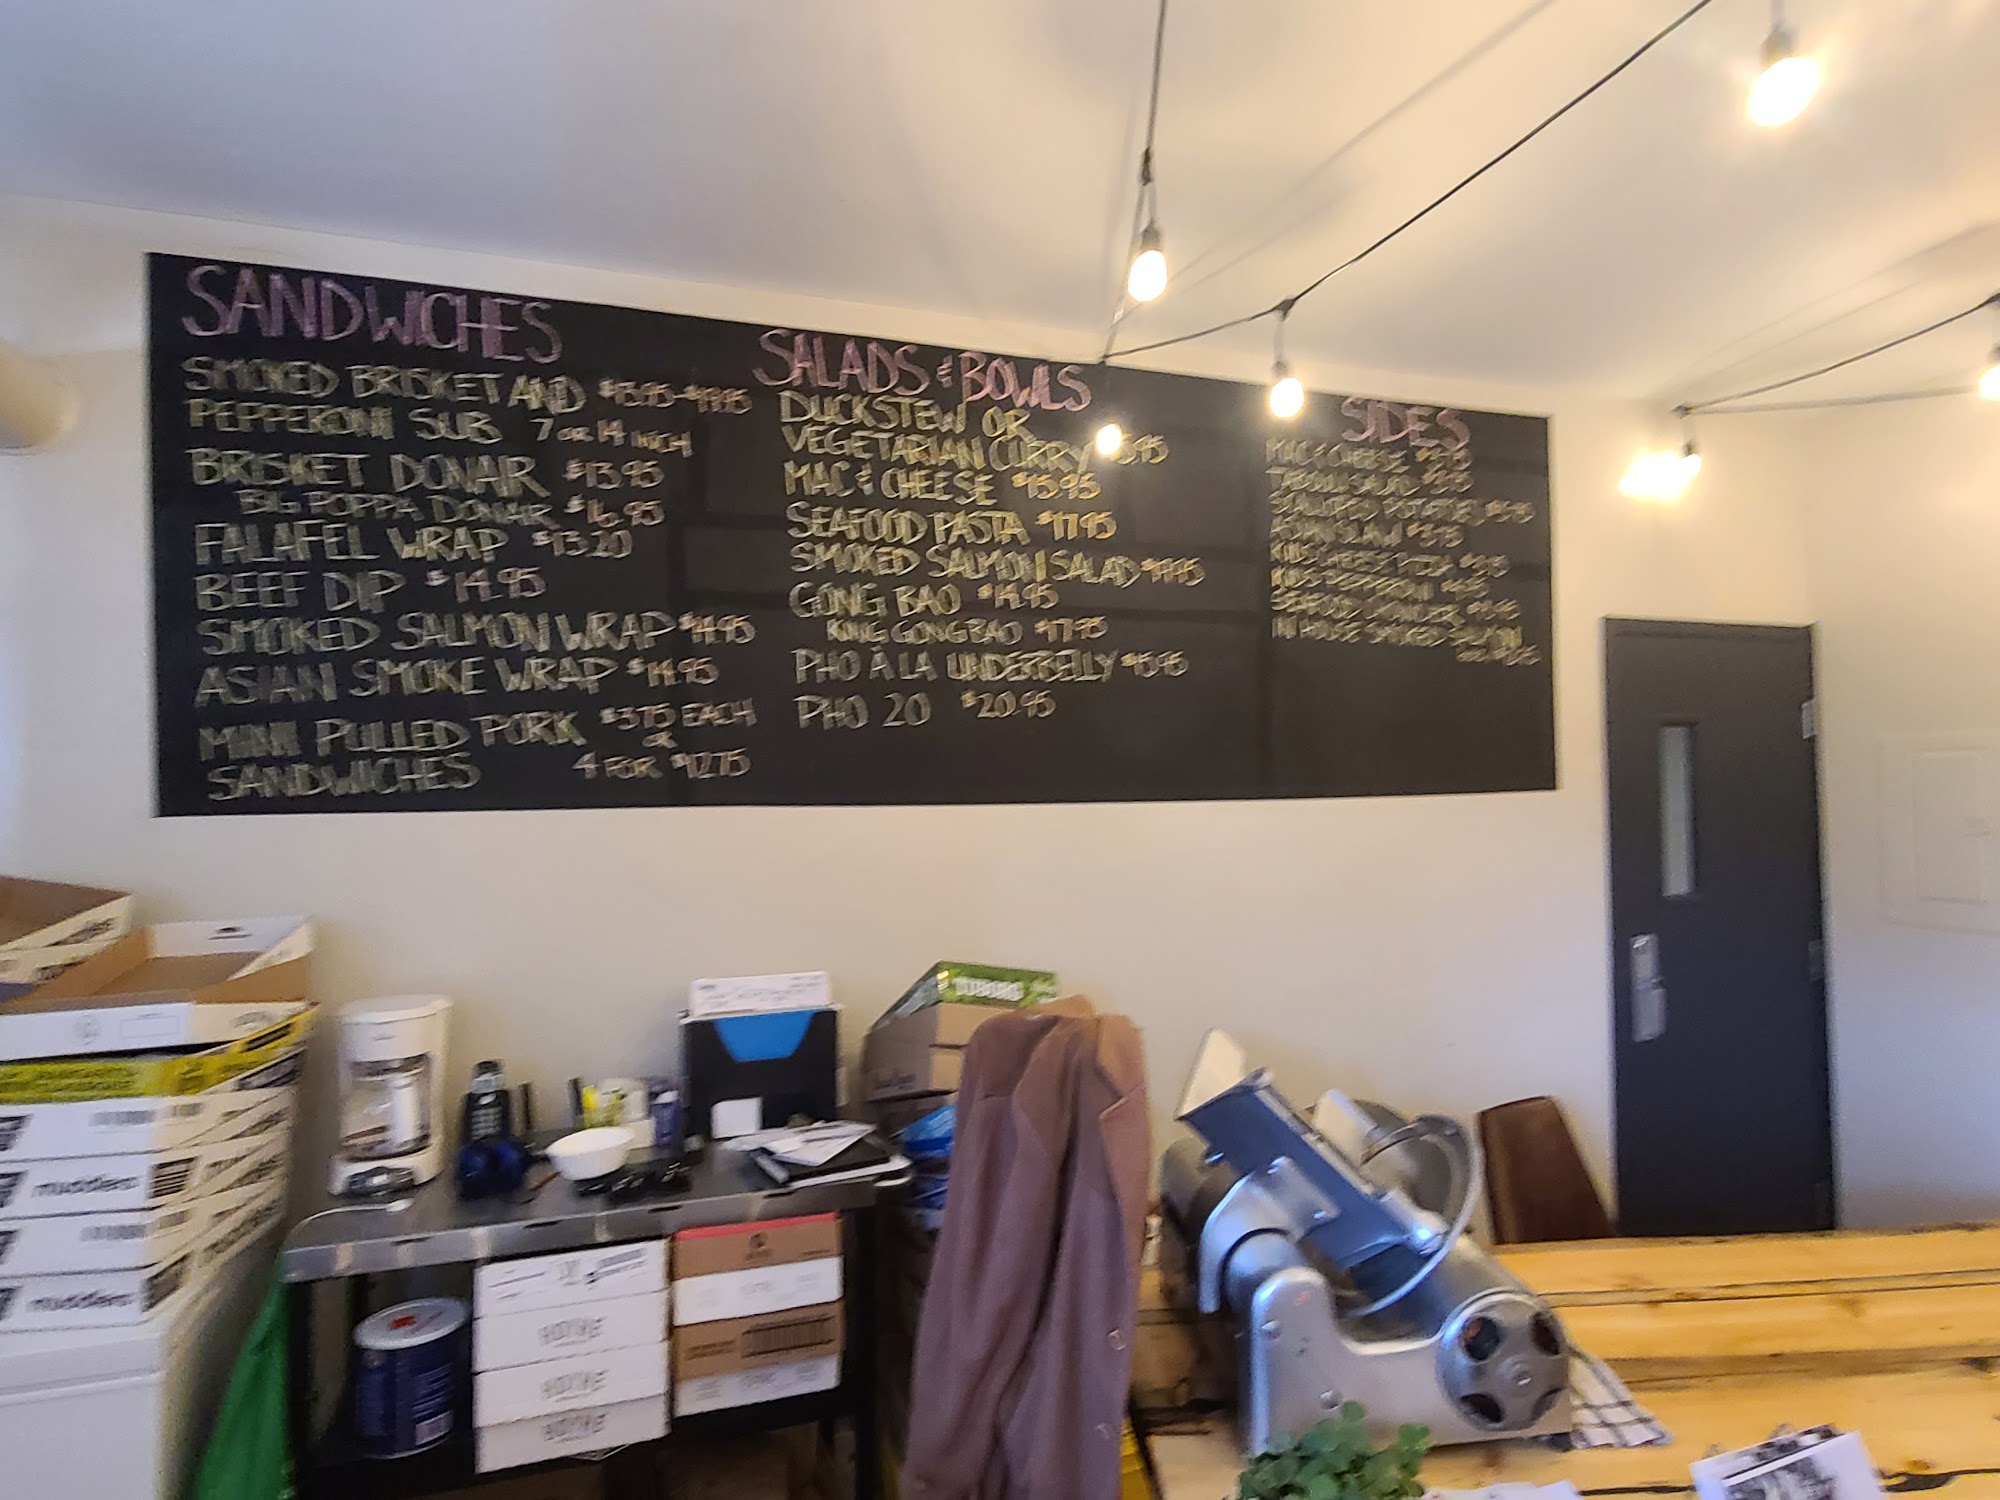 SANDWICHES
SMOKED BRISKET AND $13.95-$19.95
PEPPERONI SUB 7 OR 14 INCH
BRISKET DONAIR $13.95
BIG POPPA DONAIR $16.95
FALAFEL WRAP $13.20
BEEF DIP $14.95
SMOKED SALMON WRAP $14.95
ASIAN SMOKE WRAP $14.95
MINI PULLED PORK $3.75 EACH
OR
SANDWICHES 4 FOR $12.75
SALADS & BOWLS
DUCK STEW OR
VEGETARIAN CURRY
MAC & CHEESE $15.95
SEAFOOD PASTA $17.95
SMOKED SALMON SALAD
GONG BAO $14.95
KING GONG BAO $17.95
PHO À LA UNDERBELLY $15.95
PHO 20 $20.95
SIDES
MAC & CHEESE
SALAD
POTATOES
ASIAN SLAW
KIDS CHEESE PIZZA
KIDS PEPPERONI
SEAFOOD CHOWDER
IN HOUSE SMOKED SALMON
TUBORG
mudders
mudders